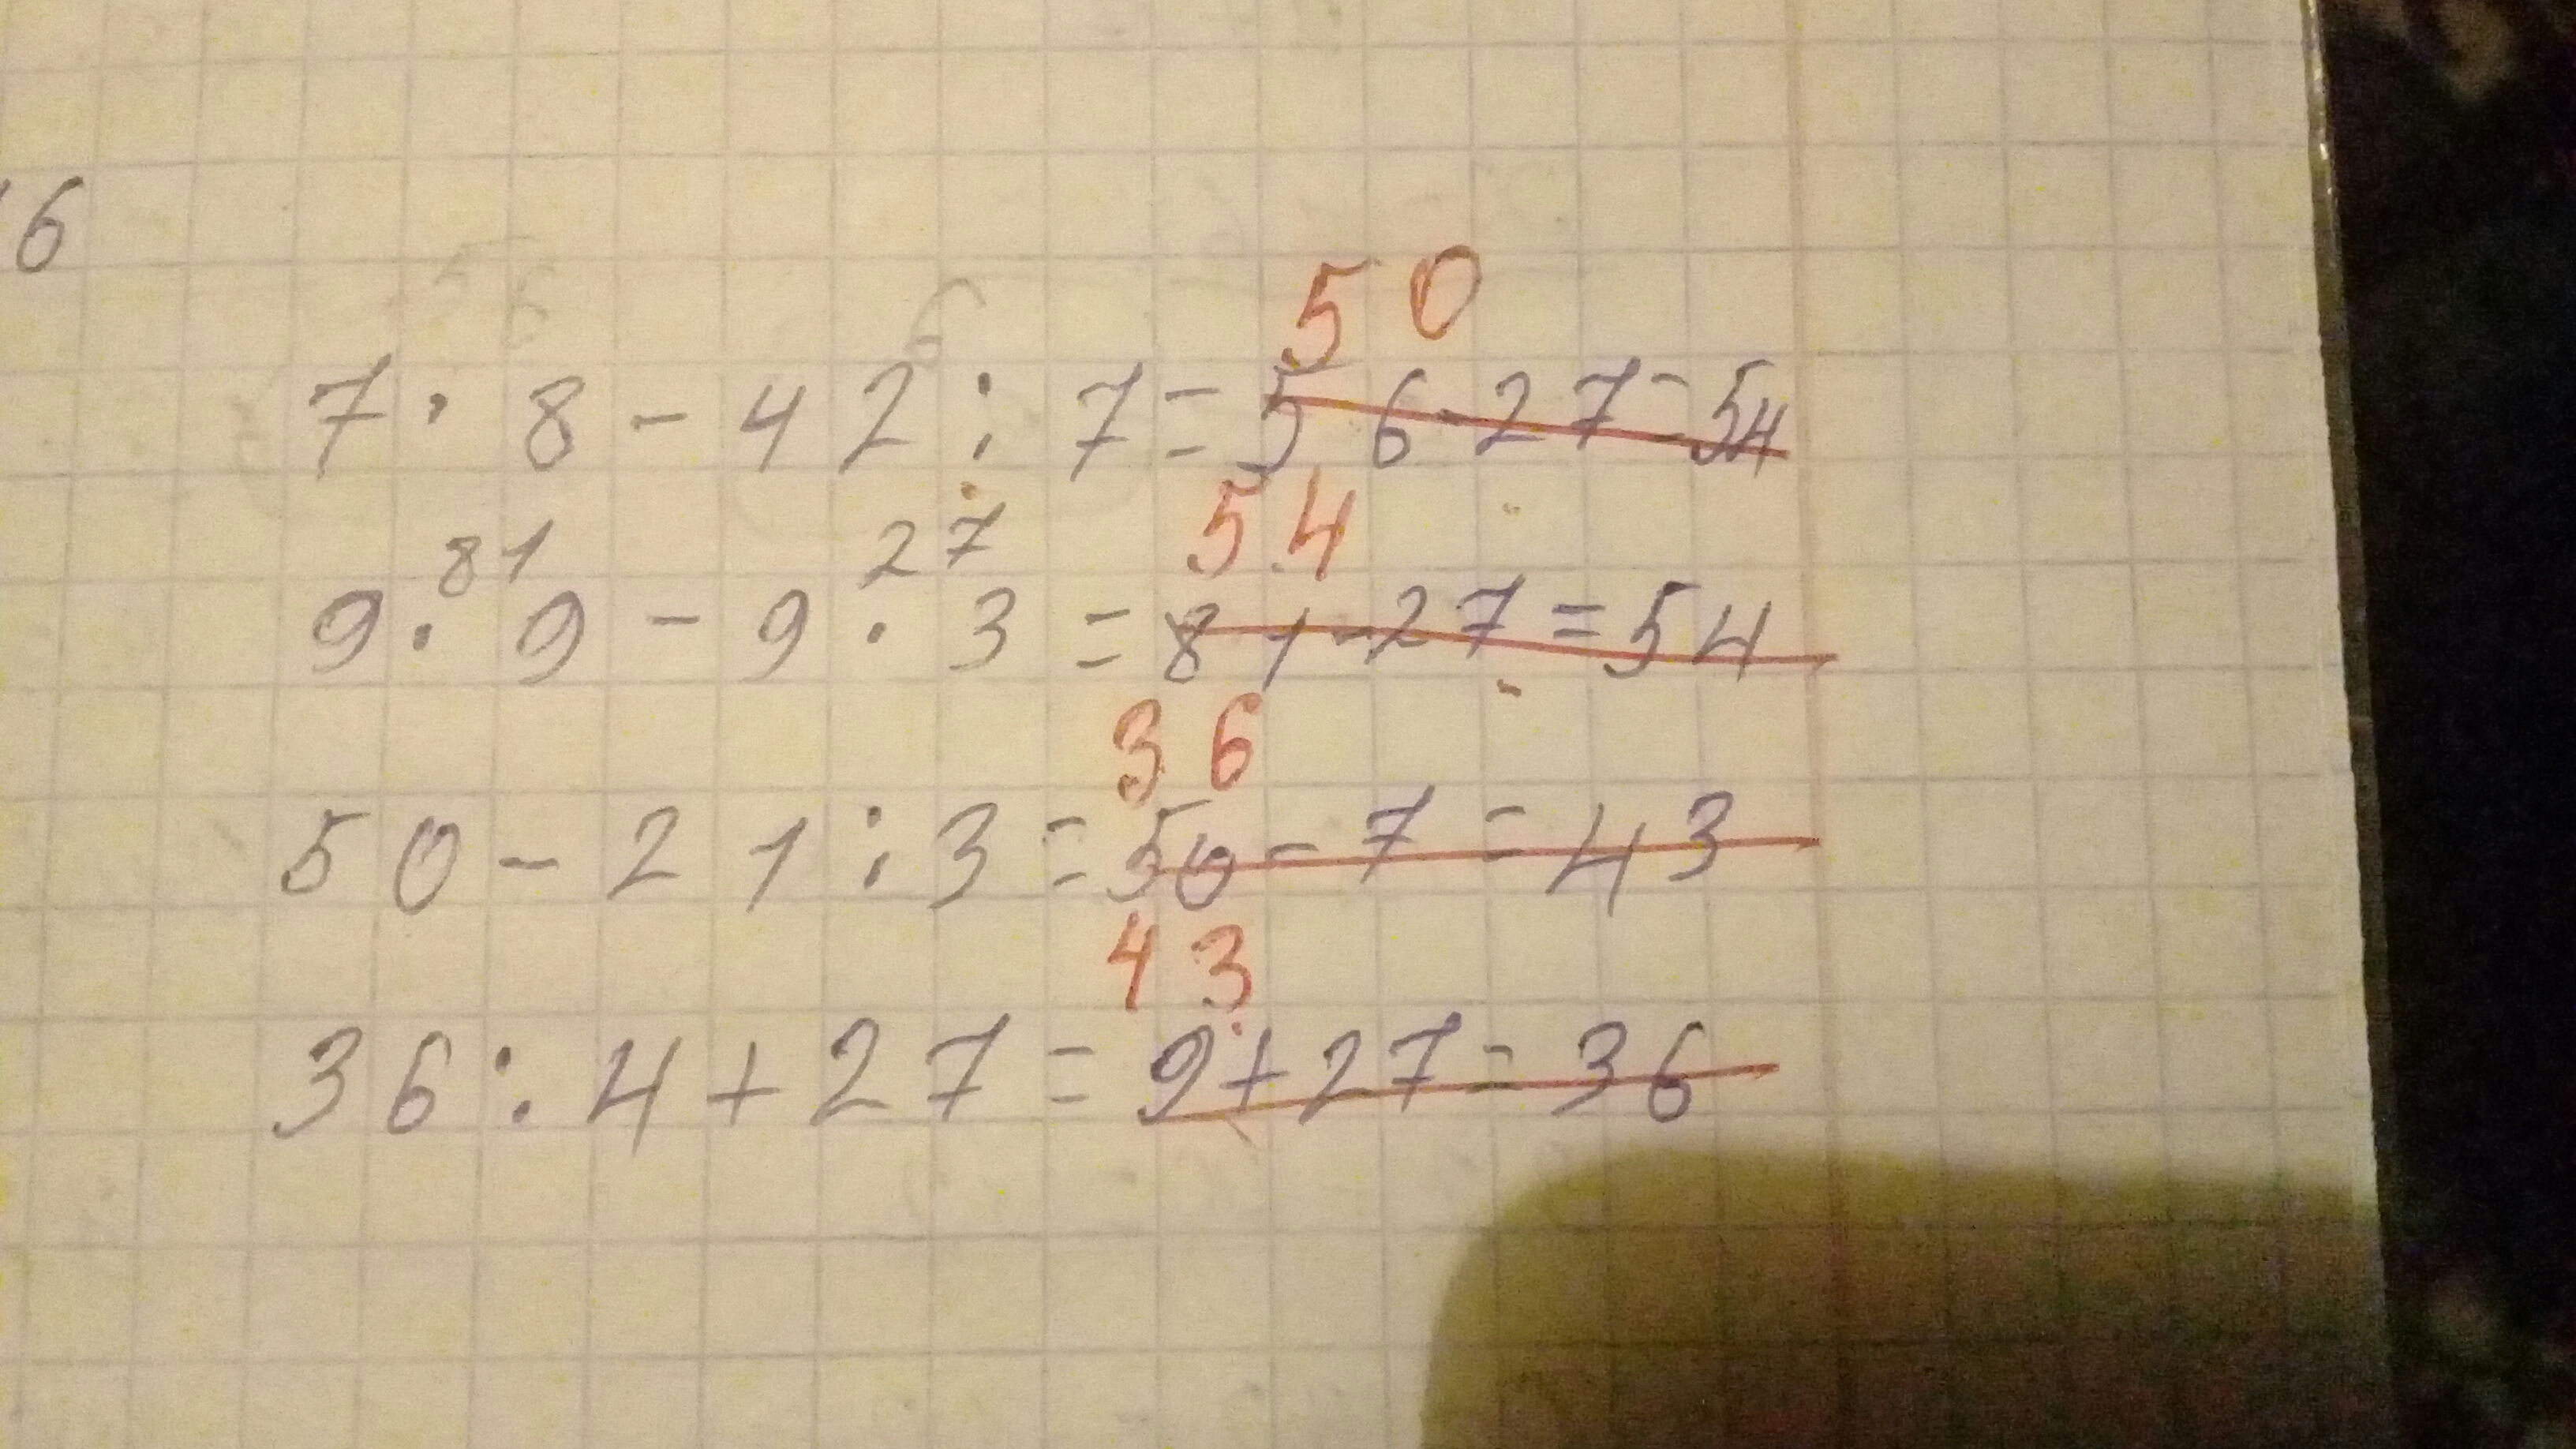 6
56 6 50
7·8-42:7=56-27=54
81 27 54
9·9-9·3=81-27=54
36
50-21:3=50-7=43
43
36:4+27=9+27=36